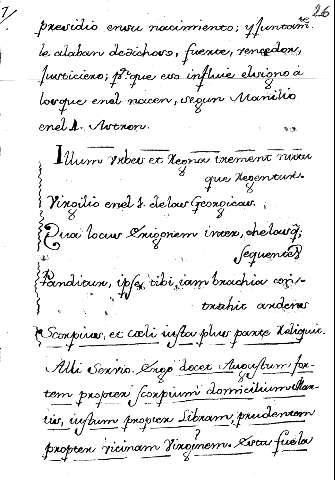 7/ 26
presidio en su nacimiento; y juntam.te
le alaban de dichoso, fuerte, vencedor,
justiciero; p.r que eso influie el signo à
los que en el nacen, segun Manilio
en el 4. Astron.
Illum Urbes et Regna trement nutu
que Regentur.
Virgilio en el 1. de las Georgicas.
Qua locus Erigonem inter, chelasq;
sequentes
Panditur, ipse tibi iam brachia con-
trahit ardens
Scorpius, et cœli iusta plus parte Reliquit.
Alli Servio. Ergo docet Augustum for-
tem propter scorpium domicilium Mar-
tis, iustum propter Libram, prudentem
propter vicinam Virginem. Esta fue la